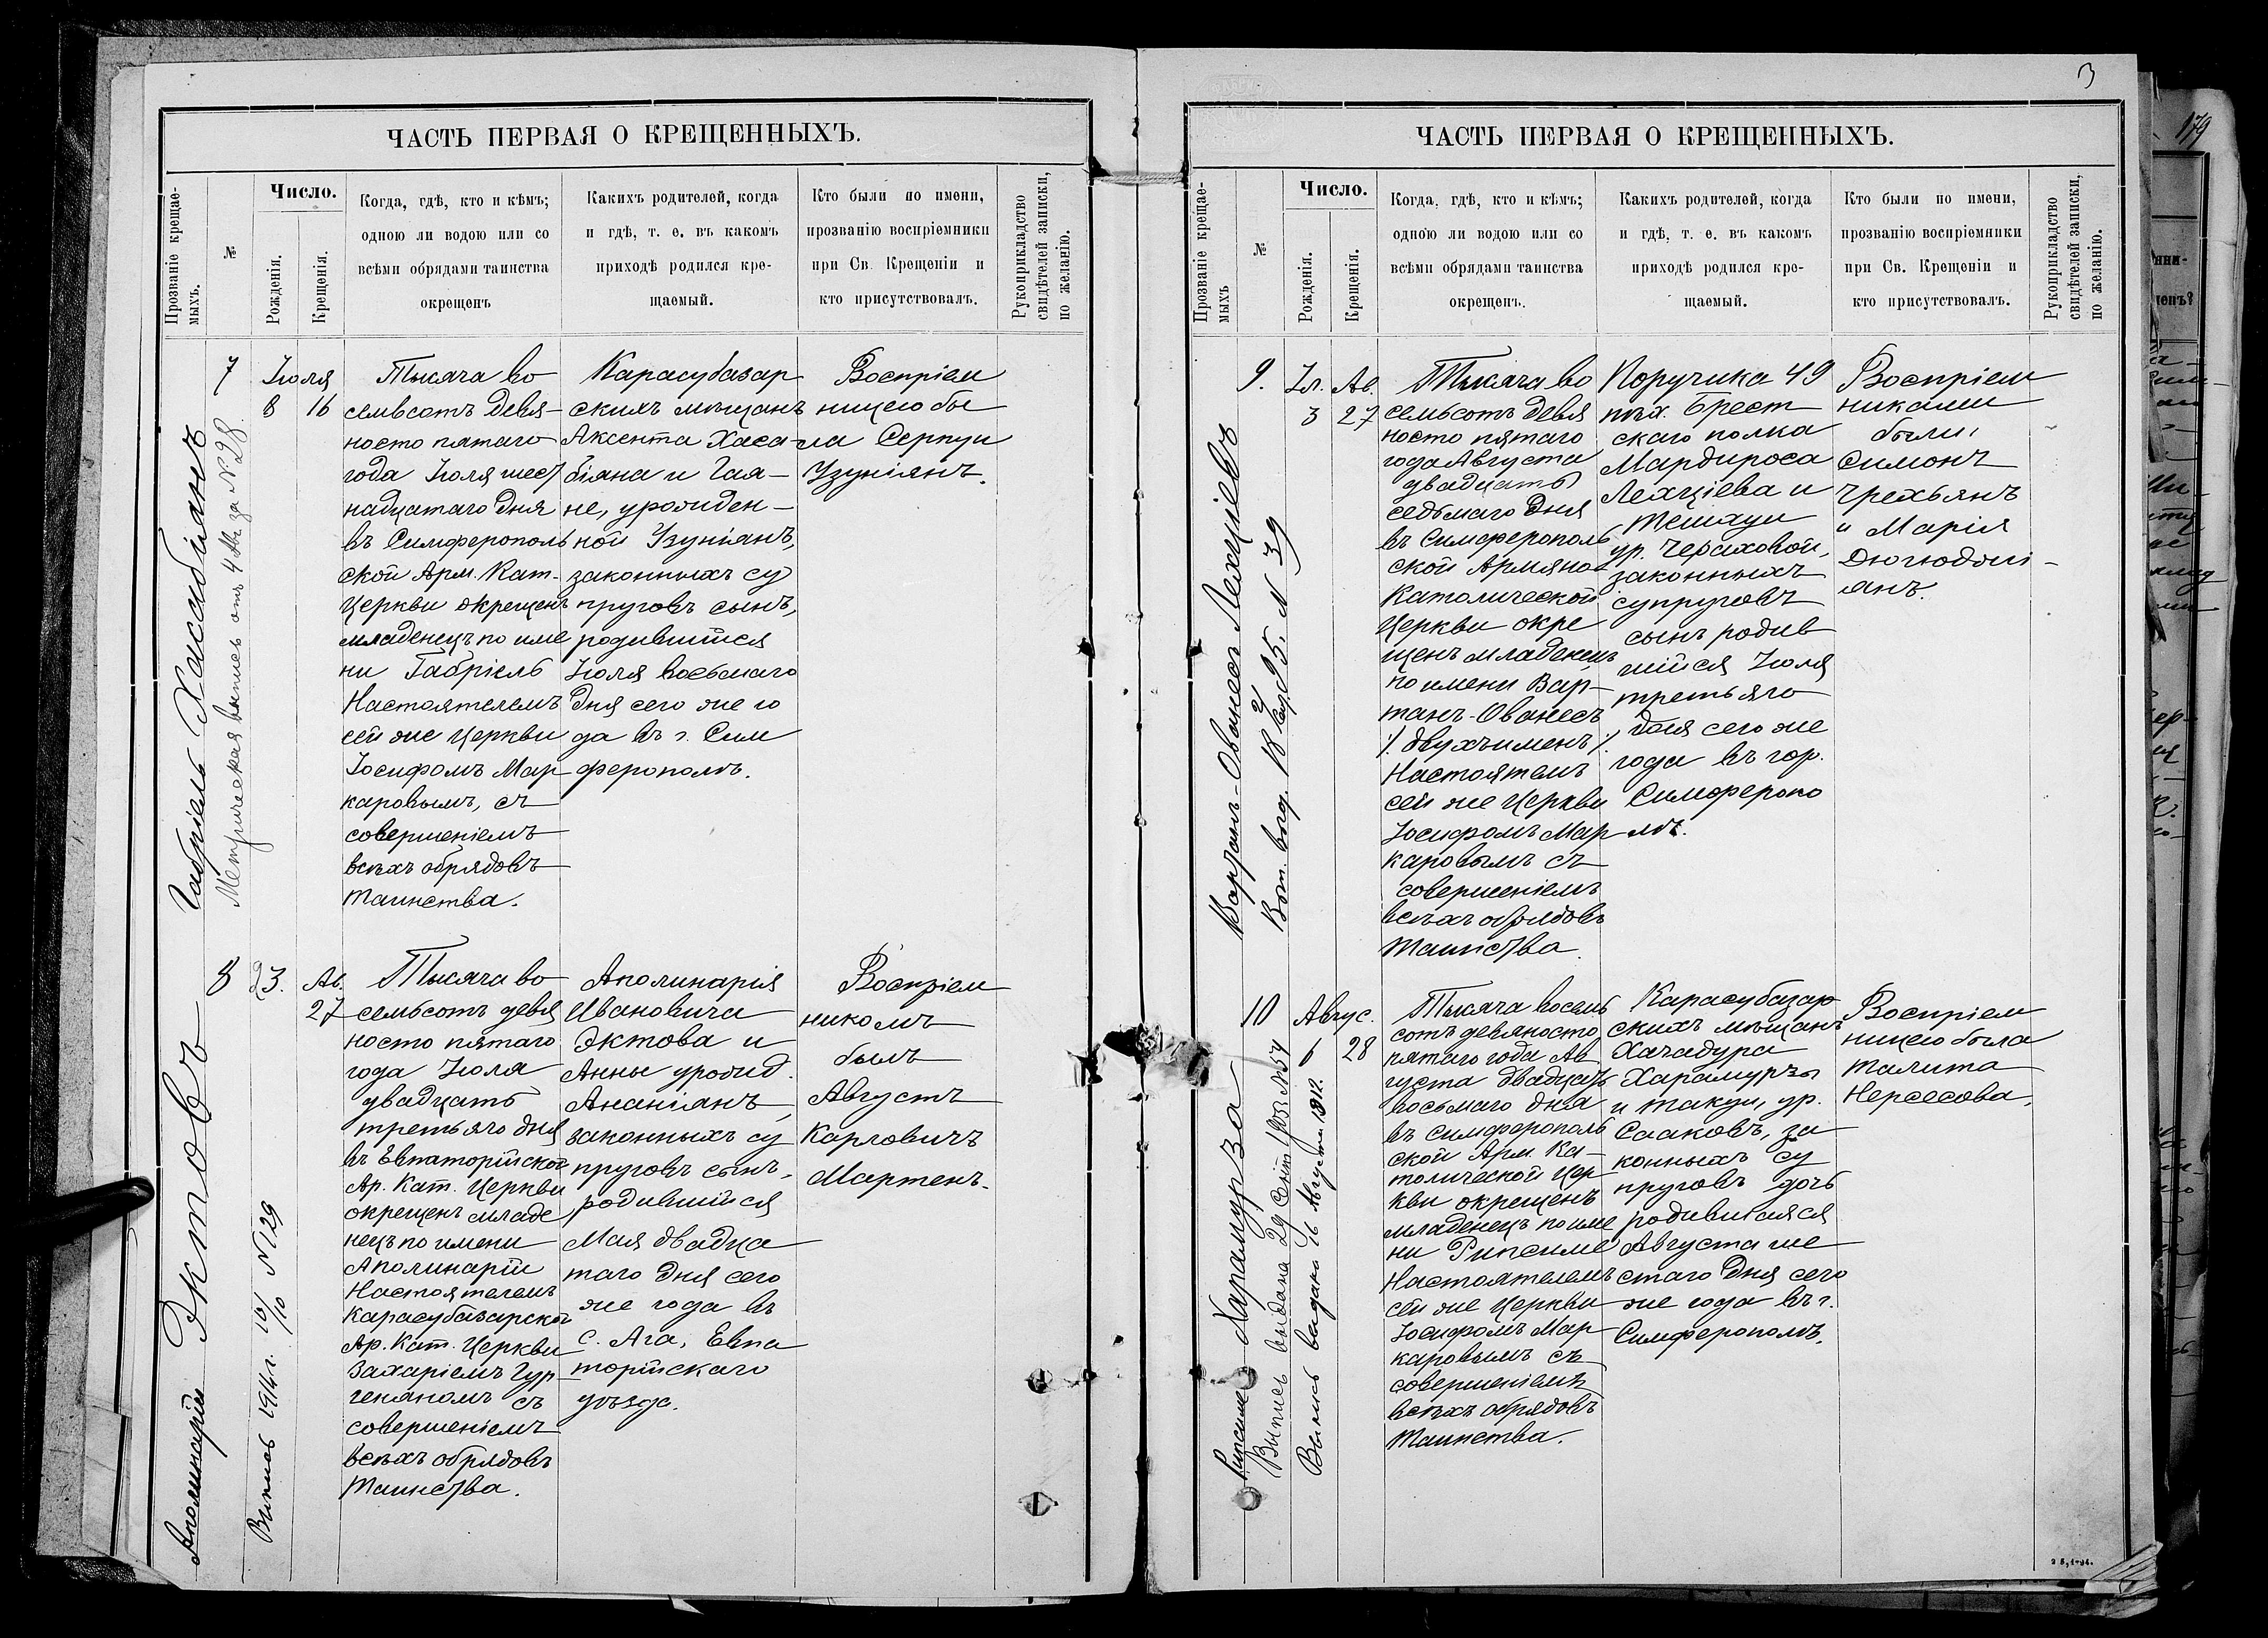 ЧАСТЬ ПЕРВАЯ О КРЕЩЕННЫХЪ.
Прозваніе крещае-
мыхъ.
№
Число.
Рожденія.
Крещенія.
Когда, гдѣ, кто и кѣмъ;
одною ли водою или со
всѣми обрядами таинства
окрещенъ
Какихъ родителей, когда
и гдѣ, т. е. въ какомъ
приходѣ родился кре-
щаемый.
Кто были по имени,
прозванію воспріемники
при Св. Крещеніи и
кто присутствовалъ.
Рукоприкладство
свидѣтелей записки,
по желанію.
Габріель Хасабіянъ
Метрическая выпись отъ 4 Ав. за N 28.
7
Іюля
8 16
Тысяча во
семьсотъ девя-
носто пятаго
года Іюля шест
надцатаго дня
въ Симферополь
ской Арм. Кат.
Церкви окрещенъ
младенецъ по име
ни Габріель
Настоятелемъ
сей же Церкви
Іосифомъ Мар
каровымъ, съ
совершеніемъ
всѣхъ обрядовъ
Таинства.
Карасубазар
скихъ мѣщанъ
Аксента Хаса-
біяна и Гая-
не, урожден-
ной Узуніанъ,
законныхъ су
пруговъ сынъ,
родившійся
Іюля восьмаго
дня сего же го
да въ г. Сим
ферополѣ.
Воспріем
ницею бы
ла Серпуи
Узуніянъ.
Аполинарій Эктовъ
Выпись 1914г. 10/10 N 129
8
23.
Ав.
27
Тысяча во
семьсотъ девя
носто пятаго
года Іюля
двадцать
третьяго дня
въ Евпаторійской
Ар. Кат. Церкви
окрещенъ младе
нецъ по имени
Аполинарій
Настоятелемъ
Карасубазарской
Ар. Кат. Церкви
Захаріемъ Гур
геняномъ съ
совершеніемъ
всѣхъ обрядовъ
Таинства.
Аполинарія
Ивановича
Эктова и
Анны урожд.
Ананіанъ,
законныхъ су
пруговъ сынъ,
родившійся
Мая двадца
таго дня сего
же года въ
с. Ага, Евпа
торійскаго
уѣзда.
Воспріем
никомъ
былъ
Августъ
Карловичъ
Мартенъ.
3
ЧАСТЬ ПЕРВАЯ О КРЕЩЕННЫХЪ.
Прозваніе крещае-
мыхъ
№
Число.
Рожденія.
Крещенія.
Когда, гдѣ, кто и кѣмъ;
одною ли водою или со
всѣми обрядами таинства
окрещенъ.
Какихъ родителей, когда
и гдѣ, т. е. въ какомъ
приходѣ родился кре-
щаемый.
Кто были по имени,
прозванію воспріемники
при Св. Крещеніи и
кто присутствовалъ.
Рукоприкладство
свидѣтелей записки,
по желанію.
Вартанъ-Ованесъ Лехціевъ
95. N 39
9.
Іл. Ав.
3 27
Тысяча во
семьсотъ девя
носто пятаго
года Августа
двадцать
седьмаго дня
въ Симферополь
ской Армяно-
Католической
Церкви окре
щенъ младенецъ
по имени Вар-
танъ-Ованесъ
/. двухъименъ ./
Настоятелемъ
сей же Церкви
Іосифомъ Мар
каровымъ съ
совершеніемъ
всѣхъ обрядовъ
Таинства.
Поручика 49
пѣх. Брест
скаго полка
Мардироса
Лехціева и
ур. Чераховой,
законныхъ
супруговъ
сынъ родив
шійся Іюля
третьяго
дня сего же
года въ гор.
Симферопо
лѣ.
Воспріем
никами
были:
Симонъ
Чрехьянъ
и Марія
Дюгюдоми
янъ.
Рипсиме Харамурза
Выпись выдана 29 Сент. 1903г. N 54
Выпись выдано 16 Августа 1912.
10
Авгус.
6 28
Тысяча восемь
сотъ девяносто
пятаго года Ав
густа двадцать
восьмаго дня
въ Симферополь
ской Арм. Ка-
толической Цер
кви окрещенъ
младенецъ по име
ни Рипсиме
Настоятелемъ
сей же Церкви
Іосифомъ Мар
каровымъ съ
совершеніемъ
всѣхъ обрядовъ
Таинства.
Карасубазар
скихъ мѣщанъ
Хачадура
Харамурзы
и Такуи, ур.
Сааковъ, за
конныхъ су
пруговъ дочь
родившаяся
Августа ше
стаго дня сего
же года въ г.
Симферополѣ.
Воспріем
ницею была
Талита
Нерсесова.
179